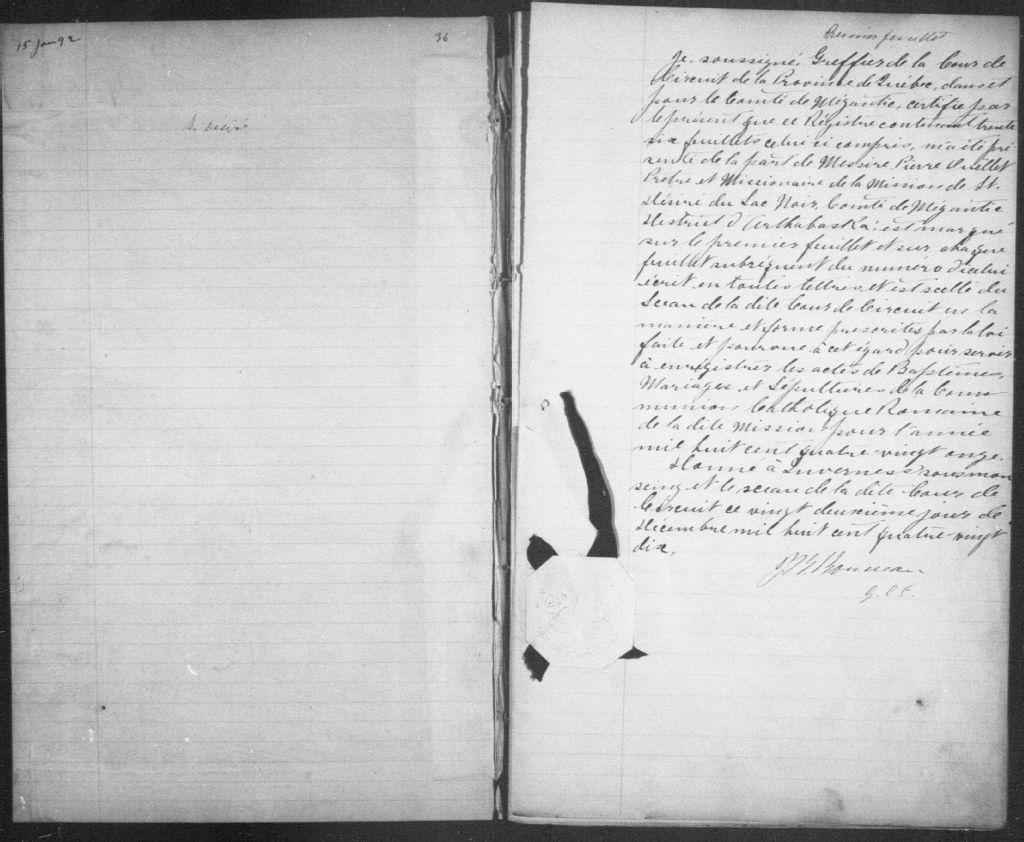 15 Jan 92
36
S. Désiré
Premier feuillet
Je, soussigné, Greffier de la Cour de
Circuit de la Province de Québec, dans et
pour le Comté de Mégantic, certifie par
le présent que ce Régistre contenant trente
six feuillets celui ci compris, m'a été pré
senté de la part de Messire Pierre Ouellet
Prêtre et Missionaire de la Mission de St.
Désiré du Lac Noir, Comté de Mégantic
District d'Arthabaska; est marqué
sur le premier feuillet et sur chaque
feuillet subséquent du numéro d'icelui
écrit en toutes lettres et est scellé du
Sceau de la dite Cour de Circuit en la
manière et forme prescrites par la loi
faite et pourvue à cet égard pour servir
à enregistrer les actes de Baptêmes,
Mariages et Sépultures de la Com
munion Catholique Romaine
de la dite Mission pour l'année
mil huit cent quatre-vingt onze.
Donné à Inverness sous mon
seing et le sceau de la dite Cour de
Circuit ce vingt deuxième jour de
Décembre mil huit cent quatre-vingt
dix.
G. C. C.